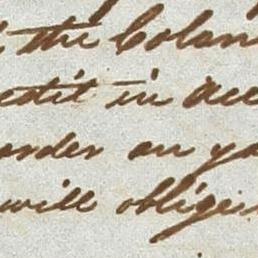 the Colon
edit in acc
order on yo
will oblige